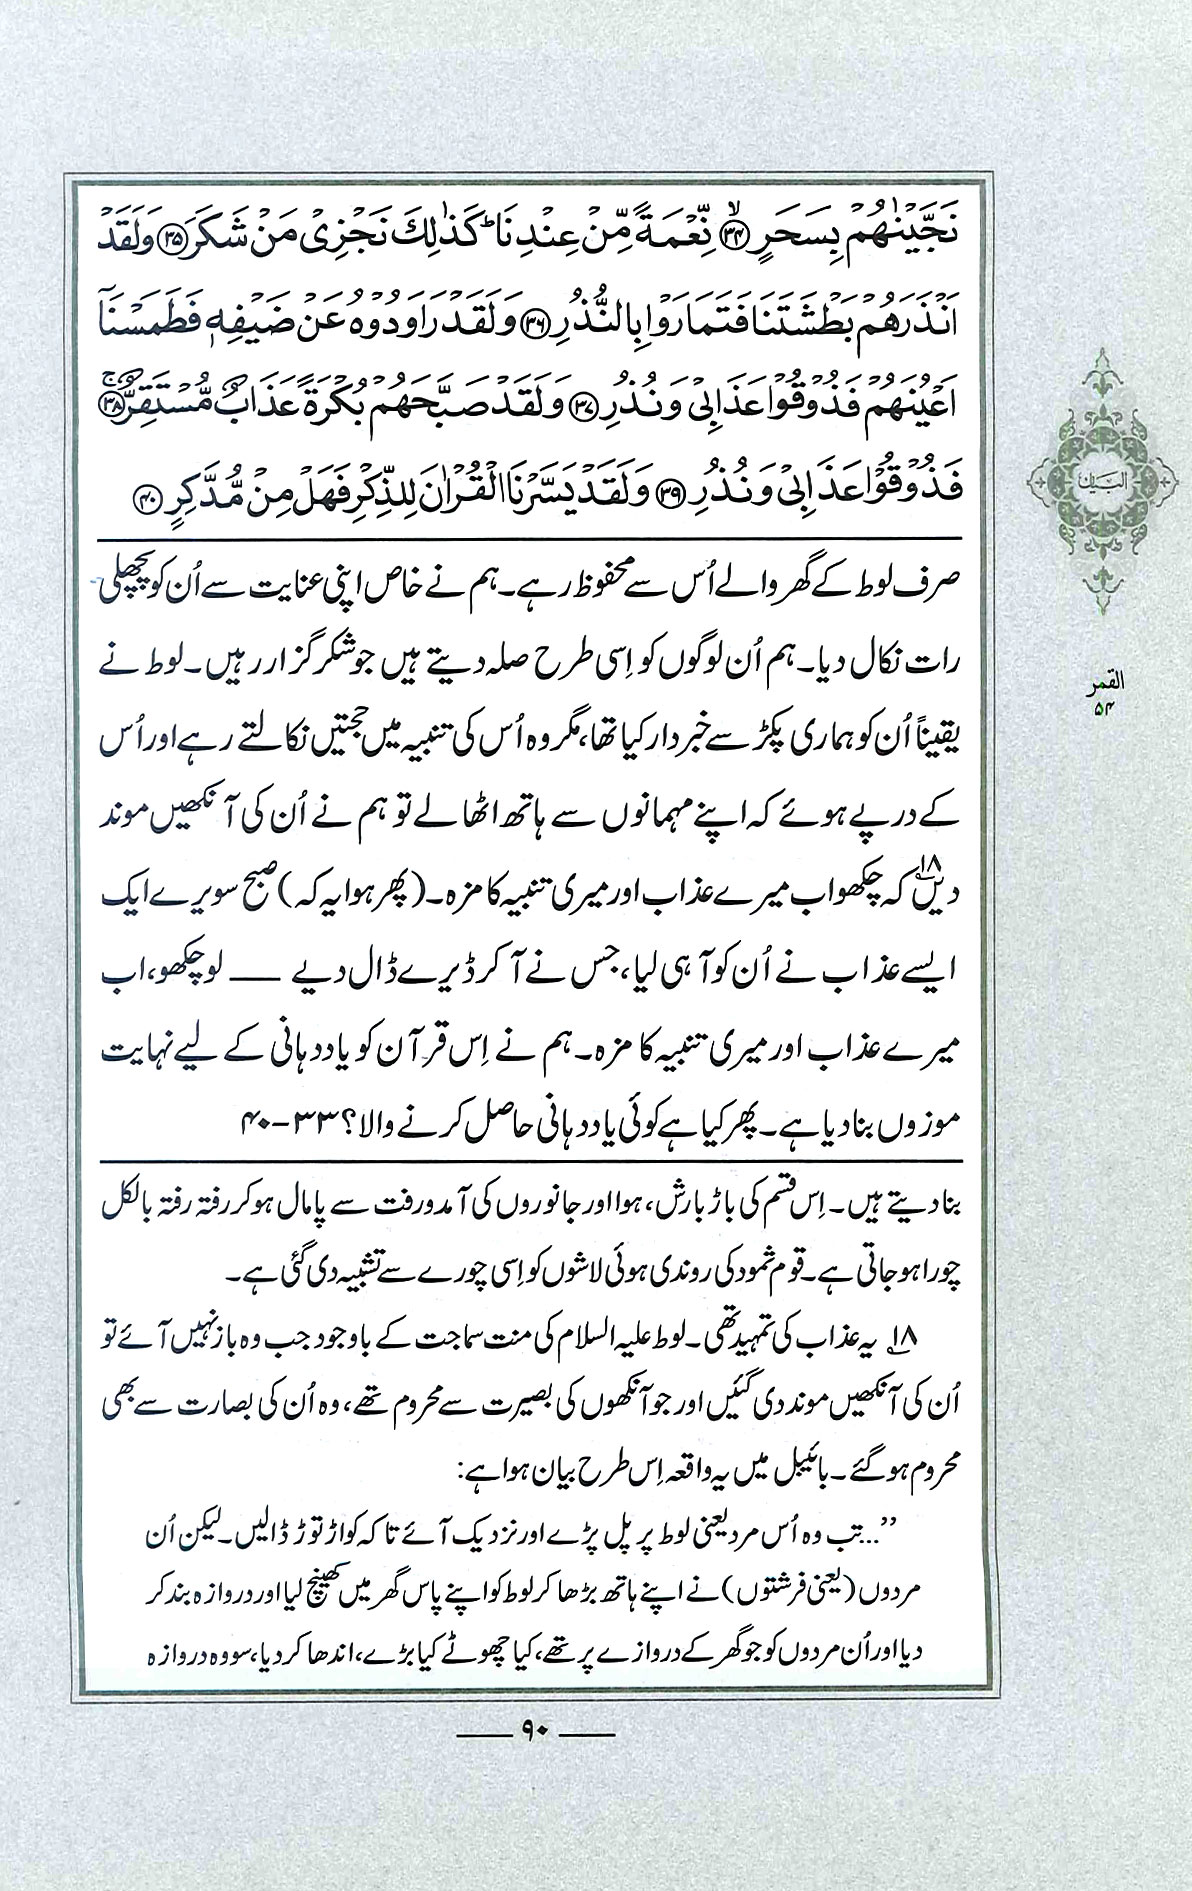 نَجَّيْنٰهُمْ بِسَحَرٍ ﴿۳۴﴾ۙ نِّعْمَةً مِّنْ عِنْدِنَا ؕ كَذٰلِكَ نَجْزِيْ مَنْ شَكَرَ ﴿۳۵﴾ وَلَقَدْ
اَنْذَرَهُمْ بَطْشَتَنَا فَتَمَارَوْا بِالنُّذُرِ ﴿۳۶﴾ وَلَقَدْ رَاوَدُوْهُ عَنْ ضَيْفِهٖ فَطَمَسْنَاۤ
اَعْيُنَهُمْ فَذُوْقُوْا عَذَابِيْ وَنُذُرِ ﴿۳۷﴾ وَلَقَدْ صَبَّحَهُمْ بُكْرَةً عَذَابٌ مُّسْتَقِرٌّ ﴿۳۸﴾ۚ
فَذُوْقُوْا عَذَابِيْ وَنُذُرِ ﴿۳۹﴾ وَلَقَدْ يَسَّرْنَا الْقُرْاٰنَ لِلذِّكْرِ فَهَلْ مِنْ مُّدَّكِرٍ ﴿۴۰﴾
صرف لوط کے گھر والے اُس سے محفوظ رہے۔ ہم نے خاص اپنی عنایت سے اُن کو پچھلی
رات نکال دیا۔ ہم اُن لوگوں کو اِسی طرح صلہ دیتے ہیں جو شکر گزار رہیں۔ لوط نے
یقیناً اُن کو ہماری پکڑ سے خبردار کیا تھا، مگر وہ اُس کی تنبیہ میں حجتیں نکالتے رہے اور اُس
کے درپے ہوئے کہ اپنے مہمانوں سے ہاتھ اٹھا لے تو ہم نے اُن کی آنکھیں موند
دیں۱۸ کہ چکھو اب میرے عذاب اور میری تنبیہ کا مزہ۔ (پھر ہوا یہ کہ) صبح سویرے ایک
ایسے عذاب نے اُن کو آ ہی لیا، جس نے آ کر ڈیرے ڈال دیے —— لو چکھو، اب
میرے عذاب اور میری تنبیہ کا مزہ۔ ہم نے اِس قرآن کو یاددہانی کے لیے نہایت
موزوں بنا دیا ہے۔ پھر کیا ہے کوئی یاددہانی حاصل کرنے والا؟ ۳۳-۴۰
بنا دیتے ہیں۔ اِس قسم کی باڑ بارش، ہوا اور جانوروں کی آمدورفت سے پامال ہو کر رفتہ رفتہ بالکل
چورا ہو جاتی ہے۔ قوم ثمود کی روندی ہوئی لاشوں کو اِسی چورے سے تشبیہ دی گئی ہے۔
۱۸ یہ عذاب کی تمہید تھی۔ لوط علیہ السلام کی منت سماجت کے باوجود جب وہ باز نہیں آئے تو
اُن کی آنکھیں موند دی گئیں اور جو آنکھوں کی بصیرت سے محروم تھے، وہ اُن کی بصارت سے بھی
محروم ہو گئے۔ بائیبل میں یہ واقعہ اِس طرح بیان ہوا ہے:
’’...تب وہ اُس مرد یعنی لوط پر پل پڑے اور نزدیک آئے تاکہ کواڑ توڑ ڈالیں۔ لیکن اُن
مردوں (یعنی فرشتوں) نے اپنے ہاتھ بڑھا کر لوط کو اپنے پاس گھر میں کھینچ لیا اور دروازہ بند کر
دیا اور اُن مردوں کو جو گھر کے دروازے پر تھے، کیا چھوٹے کیا بڑے، اندھا کر دیا، سو وہ دروازہ
—— ۹۰ ——
البیان
القمر
۵۴